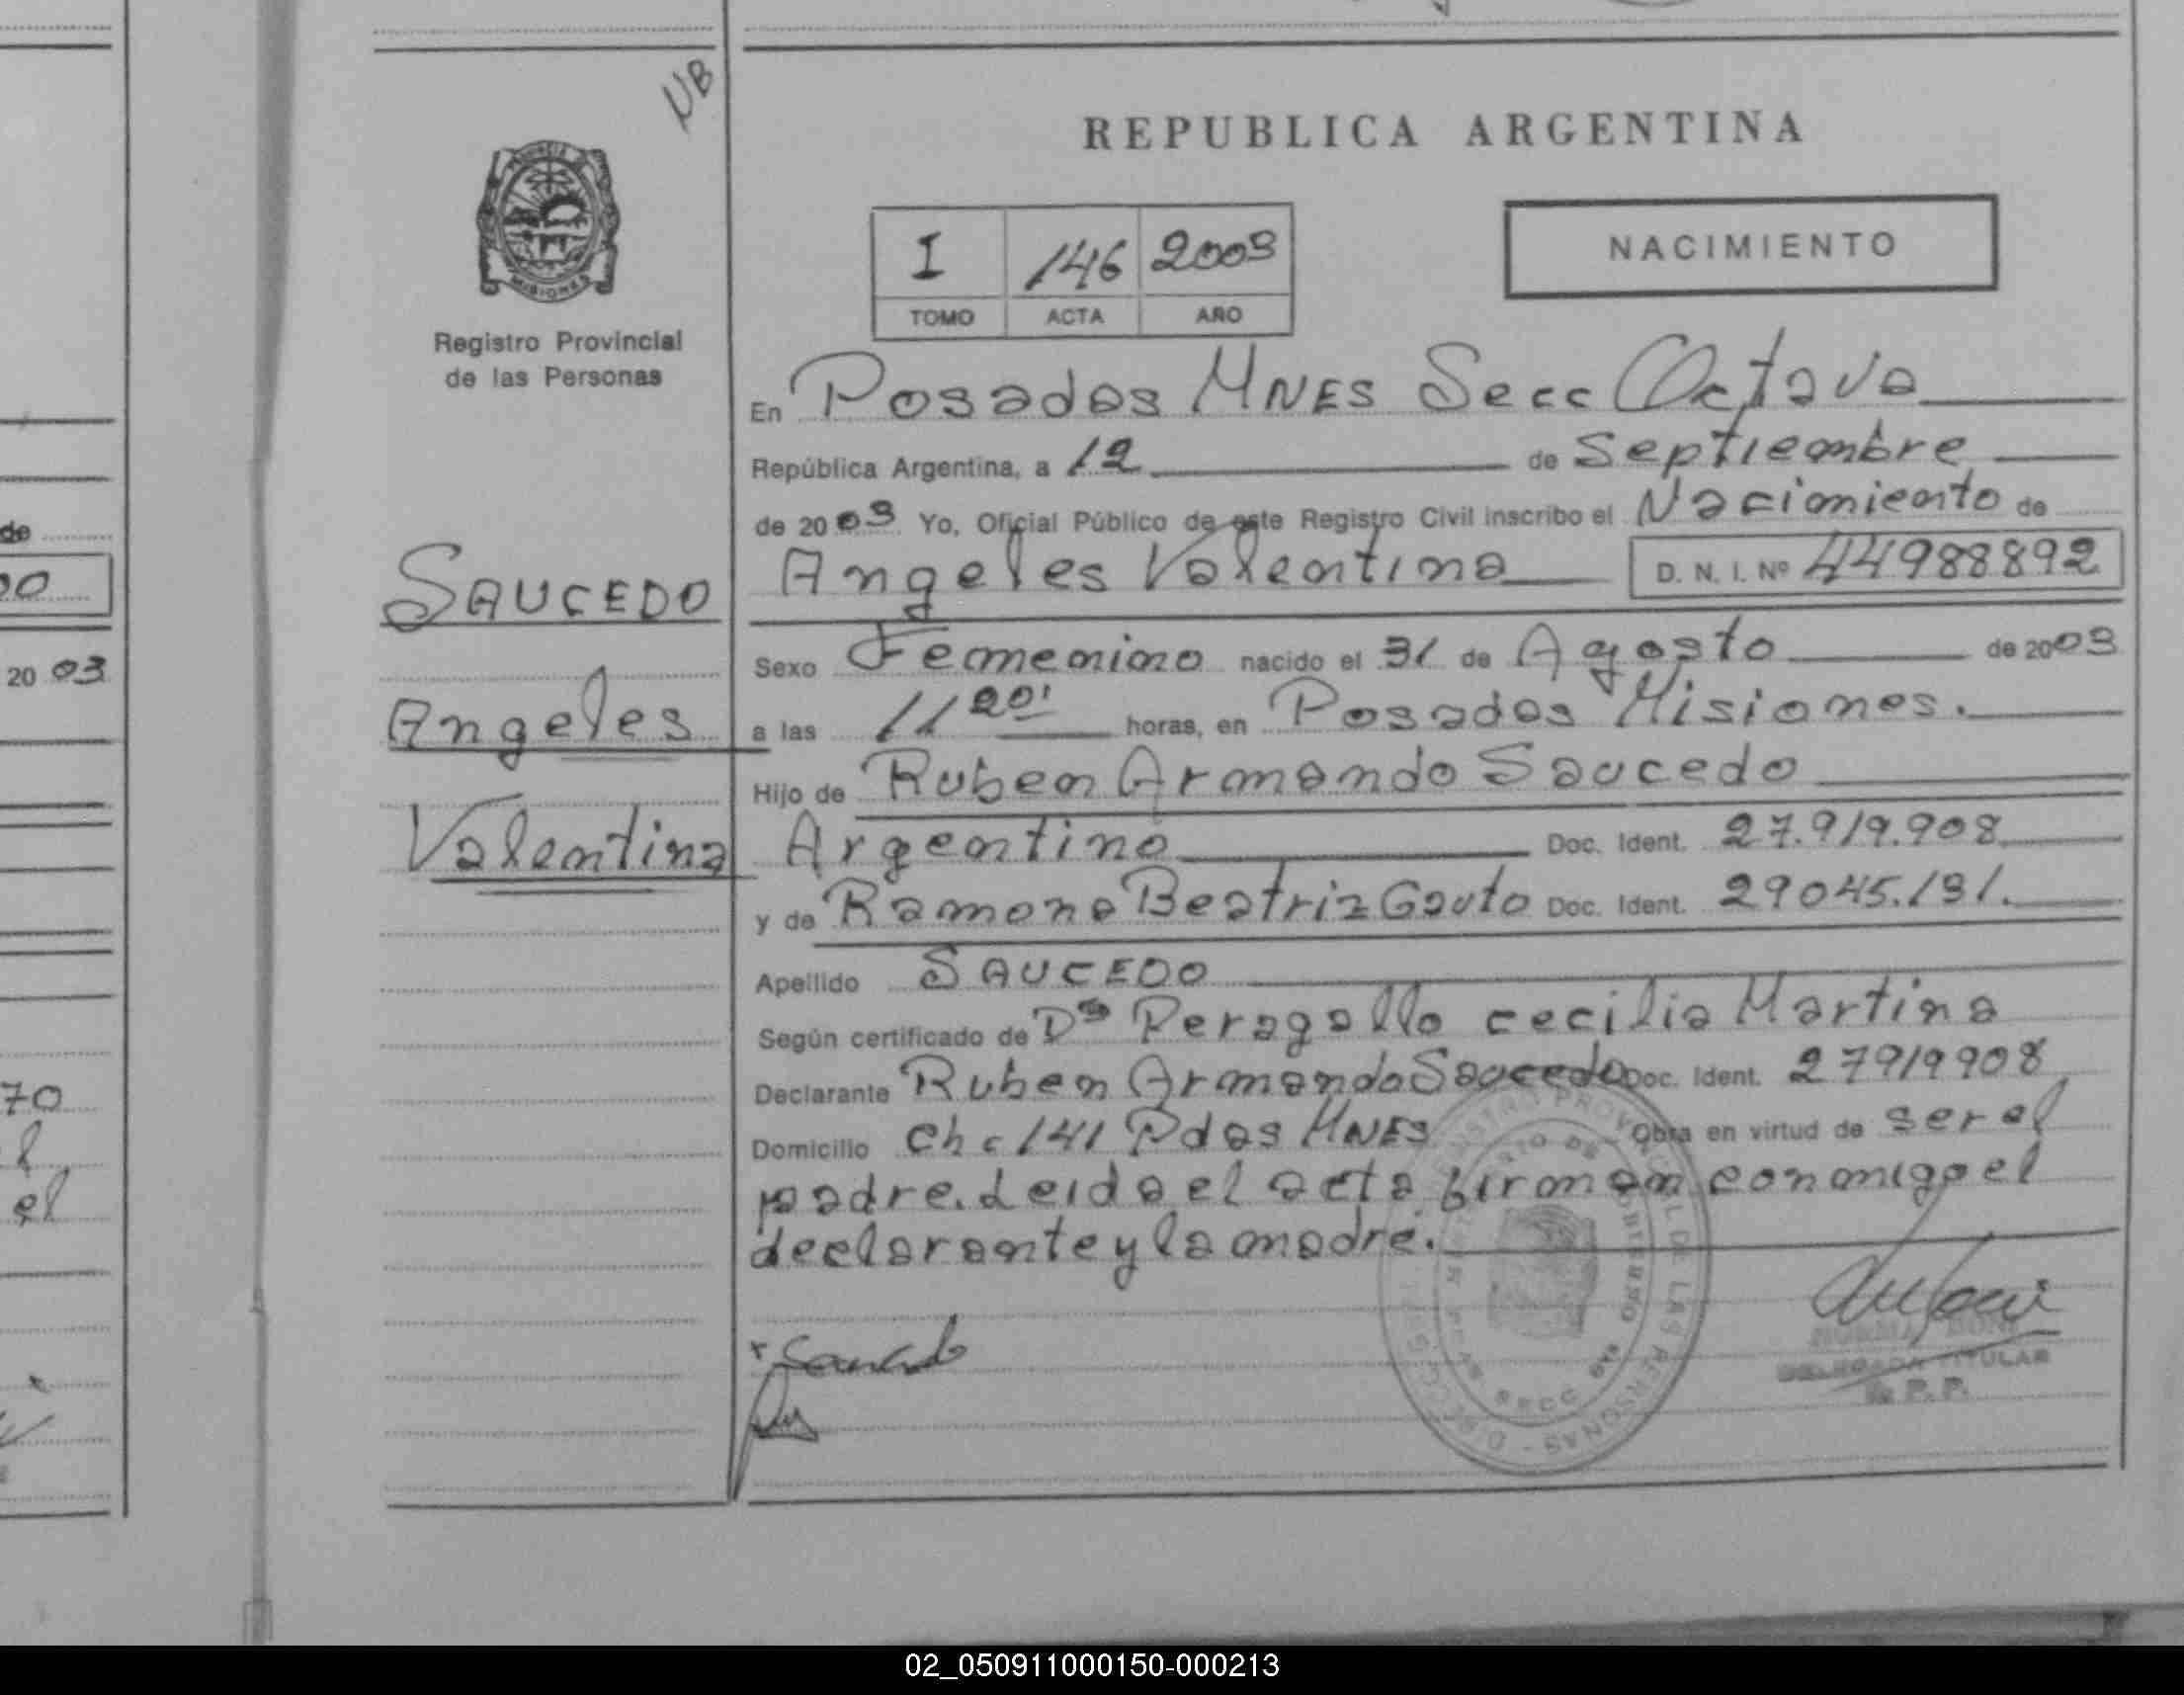 UB
REPUBLICA ARGENTINA
I 146 2003
TOMO ACTA AÑO
NACIMIENTO
MISIONES
Registro Provincial
de las Personas
En Posadas MNES Secc Octava
República Argentina, a 12 de Septiembre
de 2003 Yo, Oficial Público de este Registro Civil inscribo el Nacimiento de
Angeles Valentina D. N. I. Nº 44988892
Sexo Femenino nacido el 31 de Agosto de 2003
a las 11 20' horas, en Posadas Misiones.
Hijo de Ruben Armando Saucedo
Argentino Doc. Ident. 27.919.908
y de Ramona Beatriz Gauto Doc. Ident. 29045.131.
Apellido SAUCEDO
Según certificado de Dª Peragallo cecilia Martina
Declarante Ruben Armando Saucedo Doc. Ident. 27919908
Domicilio Ch c 141 Pdas MNES Obra en virtud de ser el
padre. Leida el acta firman conmigo el
declarante y la madre.
SAUCEDO
Angeles
Valentina
DELEGADA TITULAR
R. P. P.
de
00
20 03
70
l
el
02_050911000150-000213